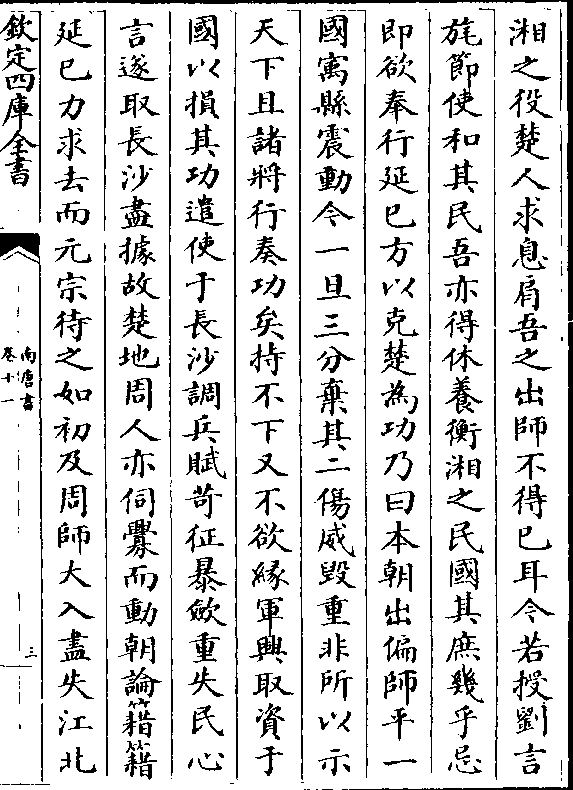 湘之役楚人求息肩吾之出師不得已耳今若授劉言
旄節使和其民吾亦得休養衡湘之民國其庶幾乎忌
即欲奉行延巳方以克楚為功乃曰本朝出偏師平一
國寓縣震動今一旦三分棄其二傷威毀重非所以示
天下且諸將行奏功矣持不下又不欲緣軍興取資于
國以損其功遣使于長沙調兵賦苛征暴斂重失民心
言遂取長沙盡據故楚地周人亦伺釁而動朝論籍籍
延巳力求去而元宗待之如初及周師大入盡失江北
欽定四庫全書
南唐書
卷十一
三